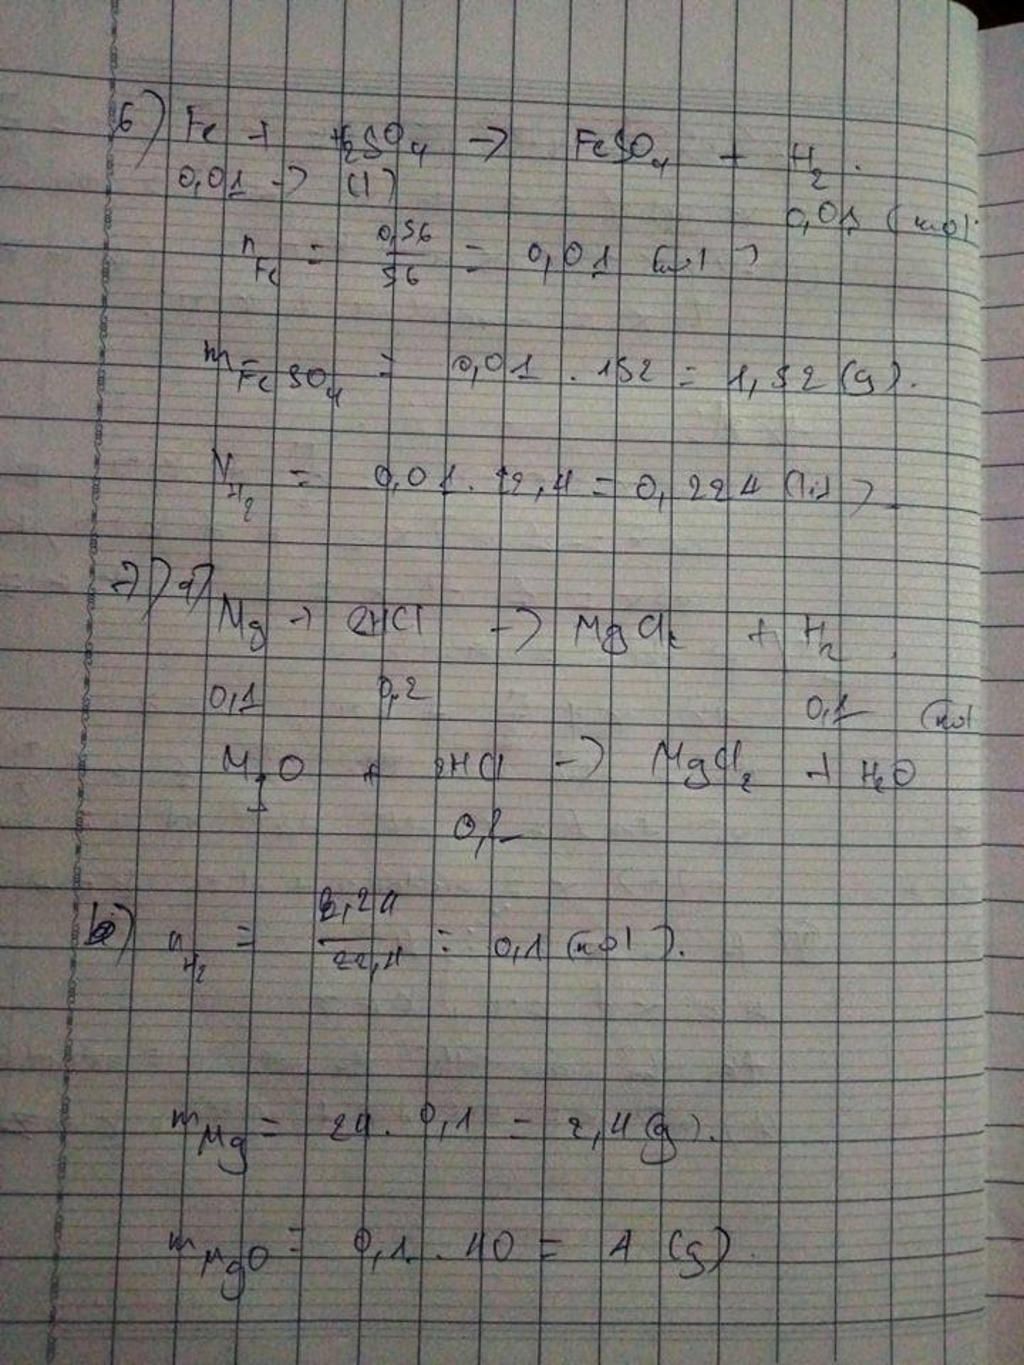 6) Fe + H₂SO₄ → FeSO₄ + H₂.
0,01 → (1) 0,01 (mol)
n Fe = 0,56/56 = 0,01 (mol)
m FeSO₄ = 0,01 . 152 = 1,52 (g).
V H₂ = 0,01 . 22,4 = 0,224 (lít)
7) a) Mg + 2HCl → MgCl₂ + H₂
0,1 0,2 0,1 (mol
MgO + 2HCl → MgCl₂ + H₂O
0,2
b) n H₂ = 2,24/22,4 = 0,1 (mol).
m Mg = 24 . 0,1 = 2,4 (g).
m MgO = 0,1 . 40 = 4 (g).